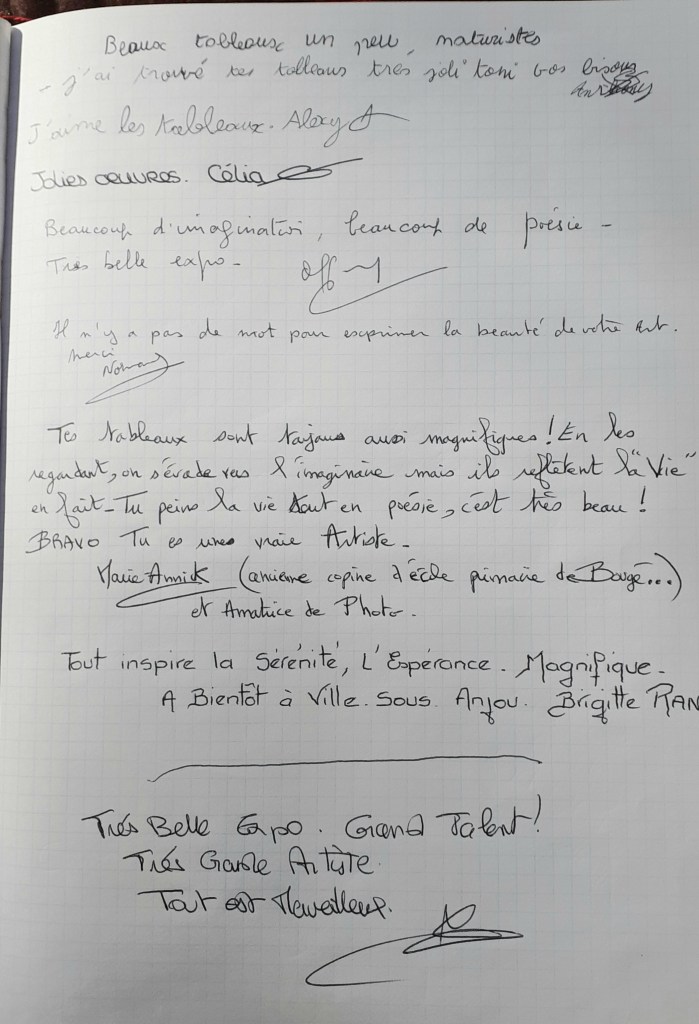 Beaux tableaux un peu, naturistes
- j'ai trouvé tes tableaus très joli toni gos bisous
J'aime les tableaux. Alexy A
Jolies oeuvres. Célia
Beaucoup d'imagination, beaucoup de poésie -
Très belle expo -
Il n'y a pas de mot pour exprimer la beauté de votre art.
Merci
Tes tableaux sont toujours aussi magnifiques ! En les
regardant, on s'évade vers l'imaginaire mais ils reflètent la "Vie"
en fait - Tu peins la vie tout en poésie, c'est très beau !
BRAVO Tu es une vraie Artiste -
Marie Annick (ancienne copine d'école primaire de Bougé...)
et Amatrice de Photo.
Tout inspire la Sérénité, L'Espérance. Magnifique -
A Bientôt à Ville. Sous. Anjou. Brigitte RAN
Très Belle Expo. Grand Talent !
Très Grande Artiste
Tout est Merveilleux.